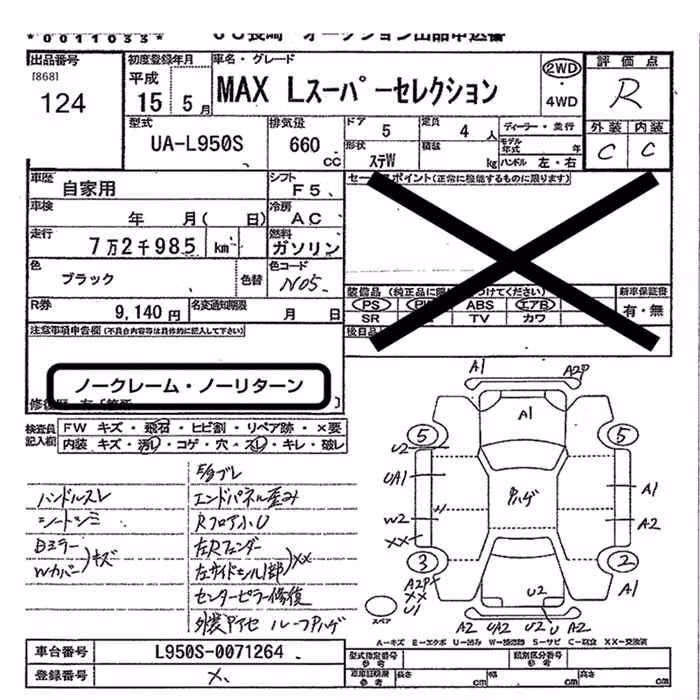 *0011033*
出品番号
[868]
124
初度登録年月
平成
15年 5月
車名・グレード
MAX Lスーパーセレクション
2WD
・
4WD
評価点
R
外装 内装
C C
型式
UA-L950S
排気量
660
CC
ドア
5
定員
4 人
ディーラー・並行
形状
ステW
積載
kg
モデル年式 年
ハンドル 左・右
車歴
自家用
シフト
F5
車検
年 月( 日)
冷房
AC
走行
7万2千985 km
燃料
ガソリン
色
ブラック
色替
色コード
N05
R券
9,140円
名変通知期限
月 日
セールスポイント(正常に機能するものに限ります)
PS
ABS
エアB
SR
TV
カワ
新車保証書
有・無
後日品
注意事項申告欄(不具合内容等は具体的に記入して下さい)
ノークレーム・ノーリターン
検査員記入欄
FW キズ・飛石・ヒビ割・リペア跡・×要
内装 キズ・汚レ・コゲ・穴・スレ・キレ・破レ
ハンドルスレ
シートシミ
Bミラー
Wカバー
キズ
エンドパネル歪み
RフロアホU
左Rフェンダー
左サイドシル1部
XX
センターピラー修復
A1
A2P
A1
5
5
U2
UA1
W2
XX
A1
A2
3
2
A2P
XX
U1
A1
U2
スペア
A2 UA2 U2 U A2
A-キズ E-エクボ U-凹み W-補修跡 S-サビ C-腐食 XX-交換済
車台番号
L950S-0071264
登録番号
型式指定番号
参考
類別区分番号
参考
長さ cm
幅 cm
高さ cm